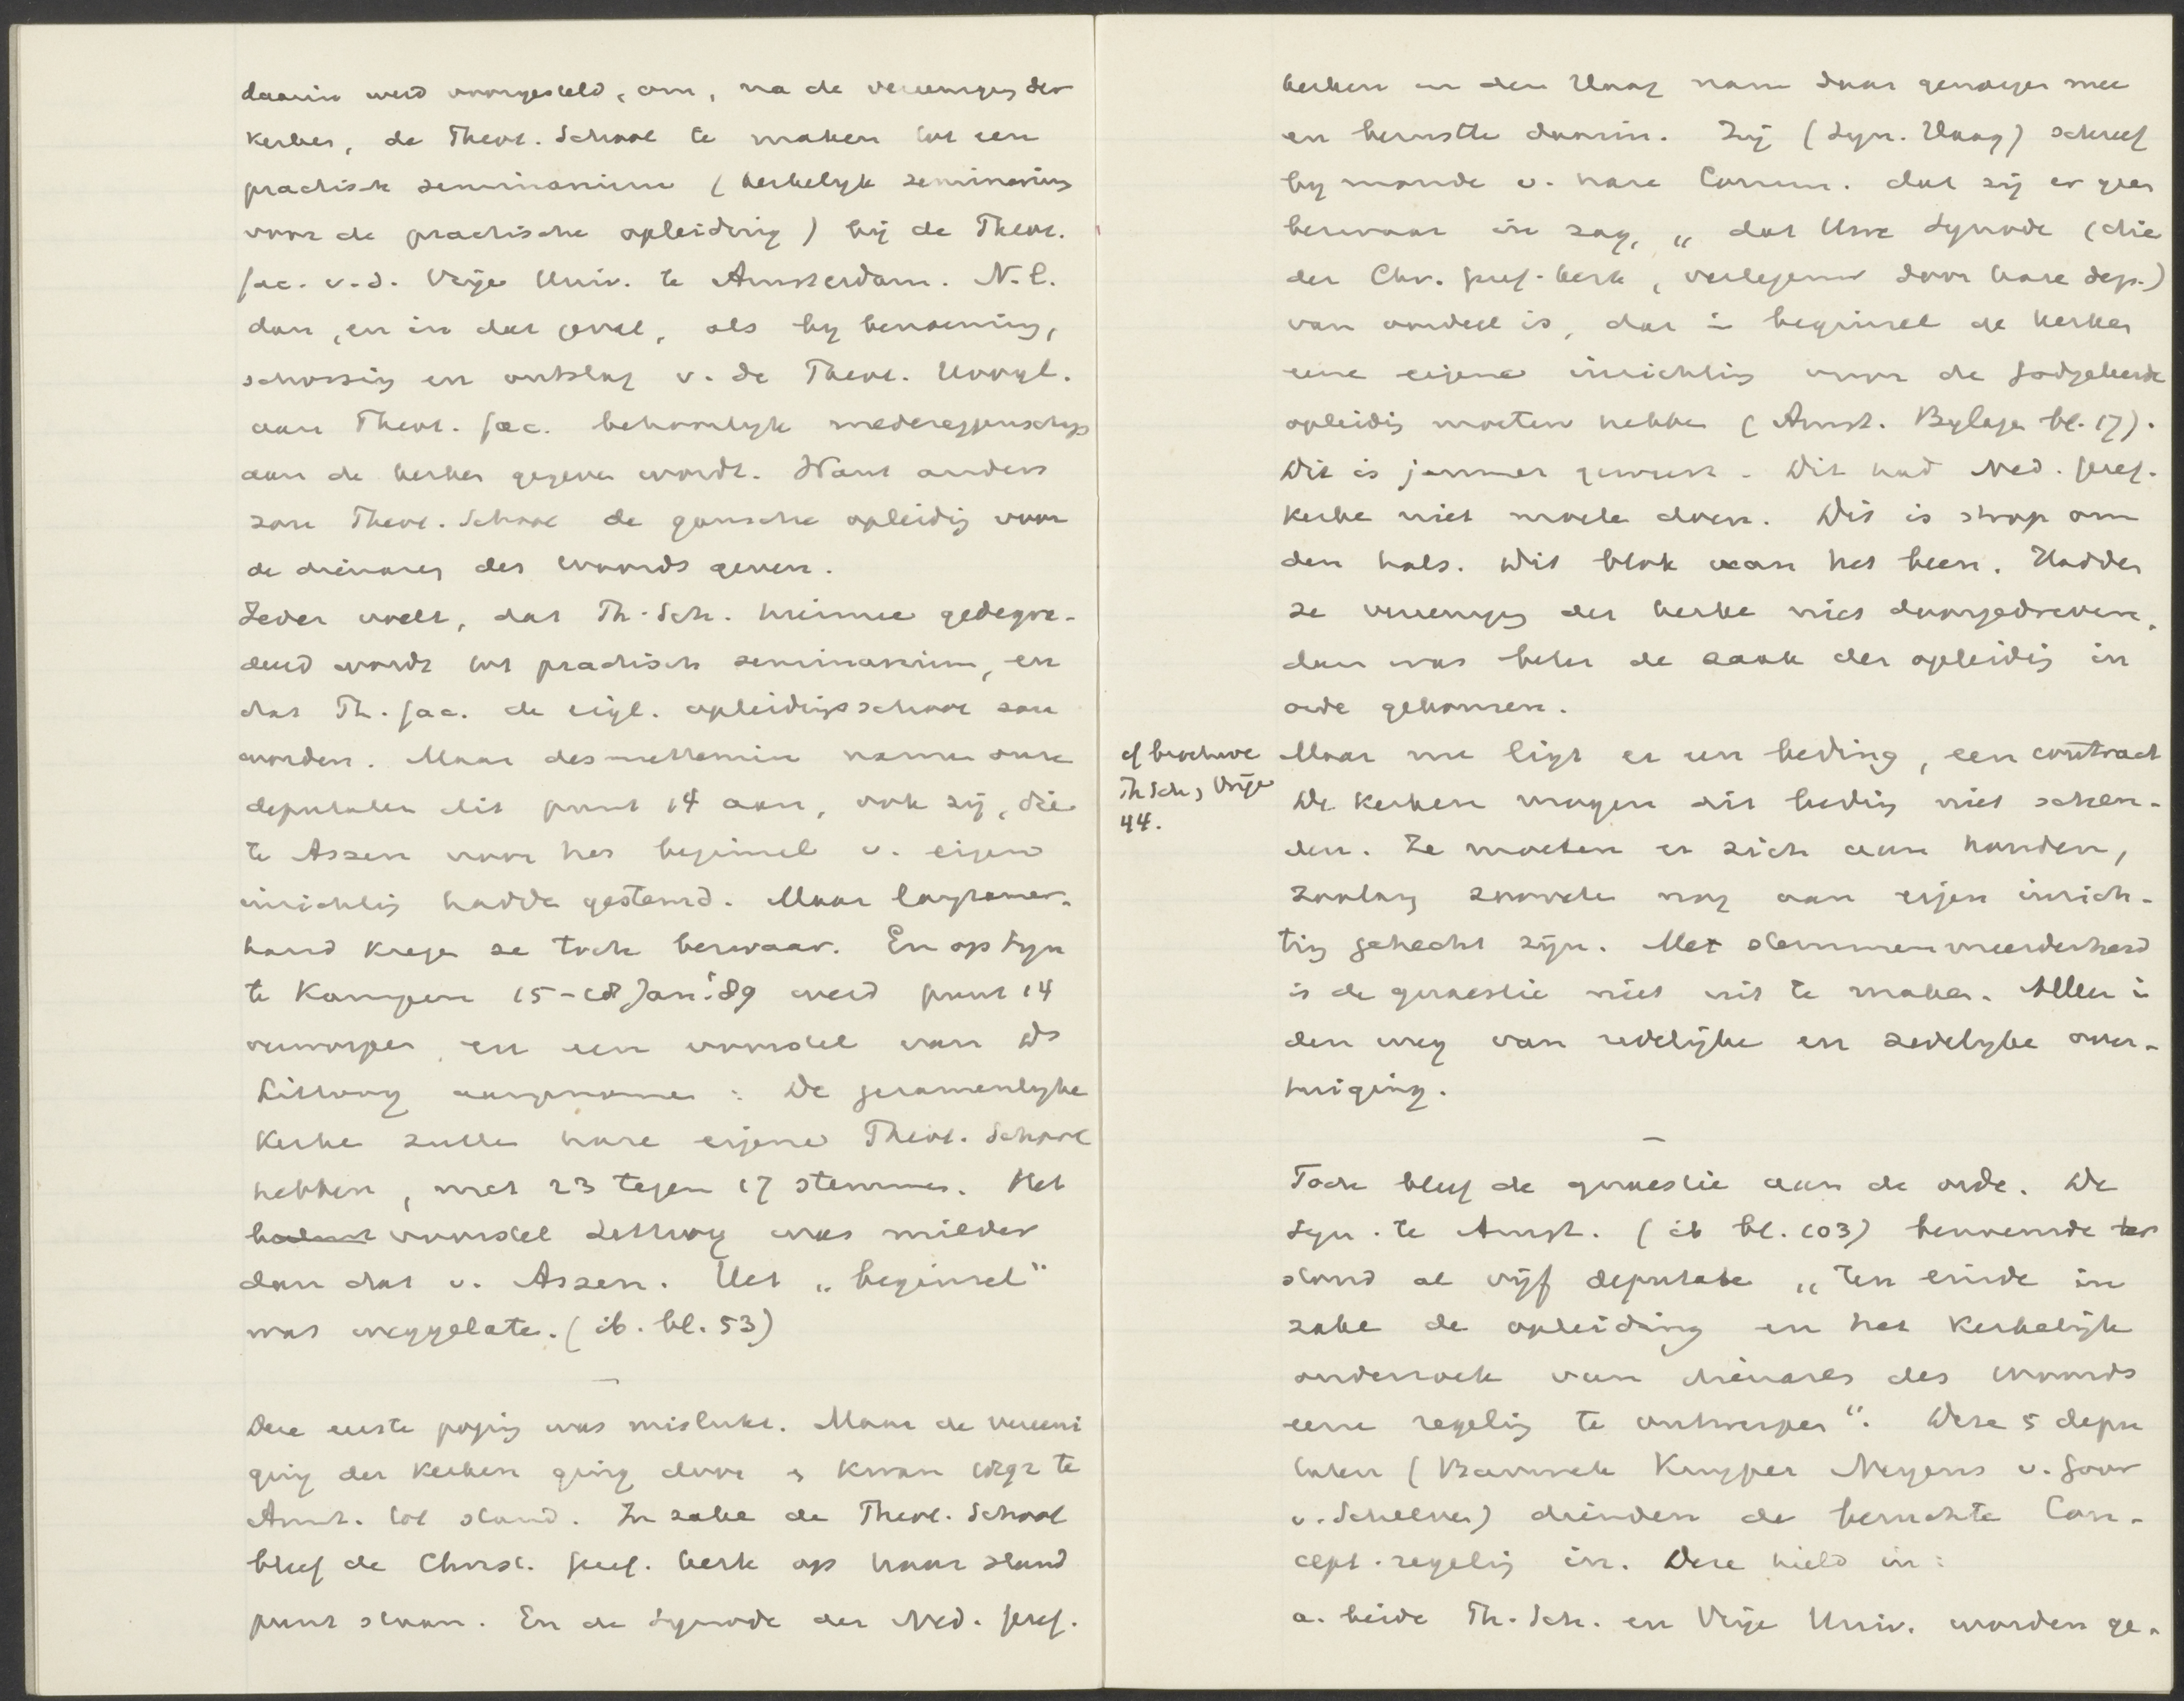 daarin werd voorgesteld, om, na de vereeniging der
kerken, de Theol. School te maken tot een
practisch seminarium (kerkelijk seminarium
voor de practische opleiding) bij de Theol.
fac. v.d. Vrije Univ. te Amsterdam. N.l.
dan, en in dat geval, als bij benoeming,
schorsing en ontslag v. de Theol. Hoogl.
aan Theol. fac. behoorlijk medezeggenschap
aan de kerken gegeven wordt. Want anders
zou Theol. School de gansche opleiding voor
de dienaren des woords geven.
Ieder voelt, dat Th. Sch. hiermee gedegra-
deerd wordt tot practisch seminarium, en
dat Th. fac. de eigl. opleidingsschool zou
worden. Maar desniettemin namen onze
deputaten dit punt 14 aan, ook zij, die
te Assen voor het beginsel v. eigen
inrichting hadden gestemd. Maar langzamer-
hand kregen ze toch bezwaar. En op Syn
te Kampen 15-18 Jan. '89 werd punt 14
verworpen, en een voorstel van Ds
Littooy aangenomen: De gezamenlijke
Kerken zullen hare eigene Theol. School
hebben, met 23 tegen 17 stemmen. Het
voorstel Littooy was milder
dan dat v. Assen. Het „beginsel"
was weggelaten. (ib. bl. 53)
—
Deze eerste poging was mislukt. Maar de vereeni
ging der Kerken ging door & kwam 1892 te
Amst. tot stand. In zake de Theol. School
bleef de Christ. Geref. kerk op haar stand
punt staan. En de Synode der Ned. Geref.
kerken in den Haag nam daar genoegen mee
en berustte daarin. Zij (Syn. Haag) schreef
bij monde v. hare Comm. dat zij er geen
bezwaar in zag, „dat Uwe Synode (die
der Chr. Geref. kerk, vertegenw door hare dep.)
van oordeel is, dat in beginsel de kerken
eene eigene inrichting voor de Godgeleerde
opleiding moeten hebben (Amst. Bijlage bl. 17).
Dit is jammer geweest. Dit had Ned. Geref.
Kerken niet moeten doen. Dit is strop om
den hals. Dit blok aan het been. Hadden
ze vereeniging der kerken niet doorgedreven,
dan was beter de zaak der opleiding in
orde gekomen.
cf brochure
Th Sch & Vrije
44.
Maar nu ligt er een beding, een contract
De Kerken mogen dit beding niet schen-
den. Ze moeten er zich aan houden,
zoolang zoovele nog aan eigen inrich-
ting gehecht zijn. Met stemmenmeerderheid
is de quaestie niet uit te maken. Alleen in
den weg van redelijke en zedelijke over-
tuiging.
—
Toch bleef de quaestie aan de orde. De
Syn. te Amst. (ib bl. 103) benoemde ter
stond al vijf deputaten „ten einde in
zake de opleiding en het Kerkelijk
onderzoek van dienaren des woords
eene regeling te ontwerpen". Deze 5 depu
taten (Bavinck Kuyper Noordtzij v. Goor
v. Schelven) dienden de beruchte Con-
cept-regeling in. Deze hield in:
a. beide Th. Sch. en Vrije Univ. worden ge-